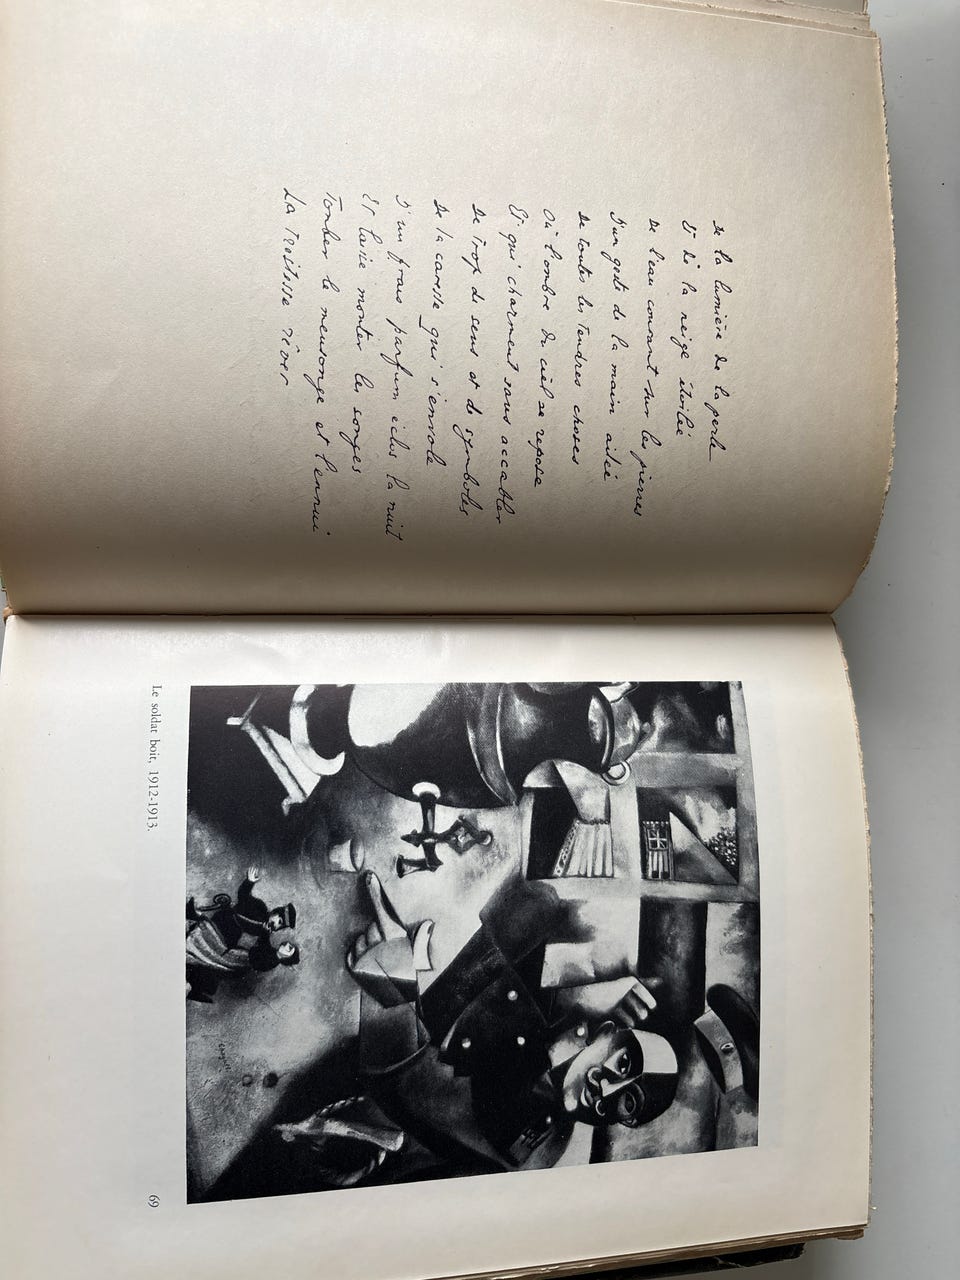 De la lumière de la perle
Et de la neige étoilée
De l'eau courant sur les pierres
D'un geste de la main ailée
De toutes les tendres choses
Où l'ombre du ciel se repose
Et qui charment sans accabler
De trop de sens et de symboles
De la caresse qui s'envole
D'un frais parfum éclos la nuit
Et laisse monter les songes
Tomber le mensonge et l'ennui
La Tristesse rêver
Le soldat boit, 1912-1913.
69